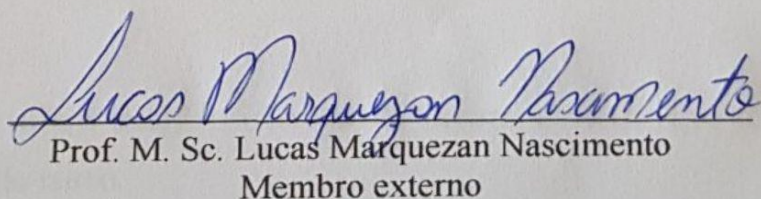 Lucas Marquezan Nascimento
Prof. M. Sc. Lucas Marquezan Nascimento
Membro externo